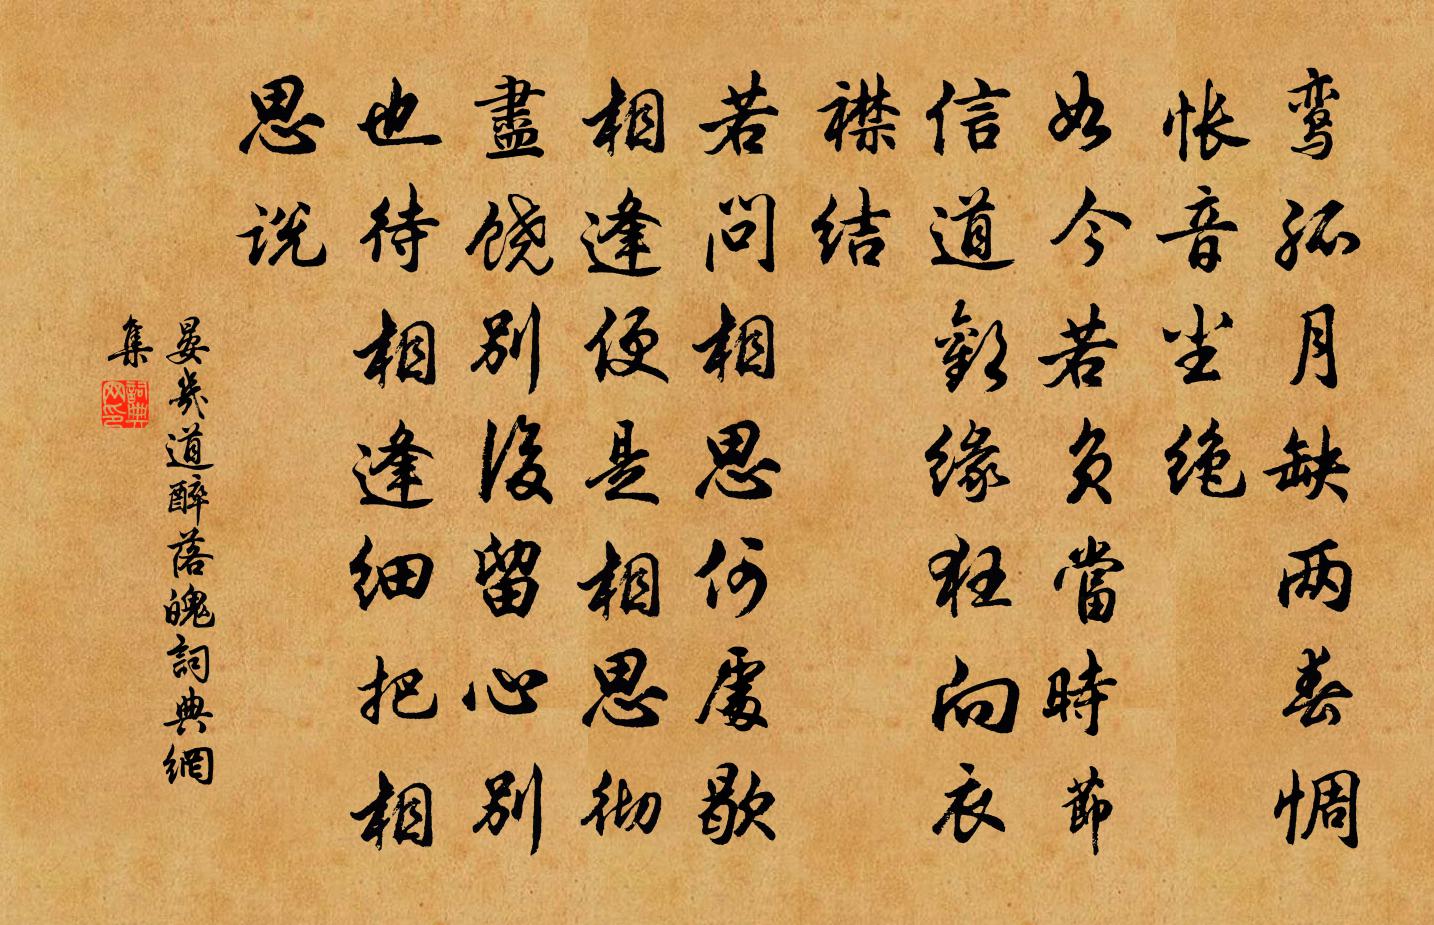 鸾孤月缺两春惆
怅音尘绝
如今若负當時節
信道歡缘狂向衣
襟结
若问相思何處歇
相逢便是相思彻
盡饶别後留心别
也待相逢细把相
思说
晏幾道醉落魄詞典網
集
詞典
网印